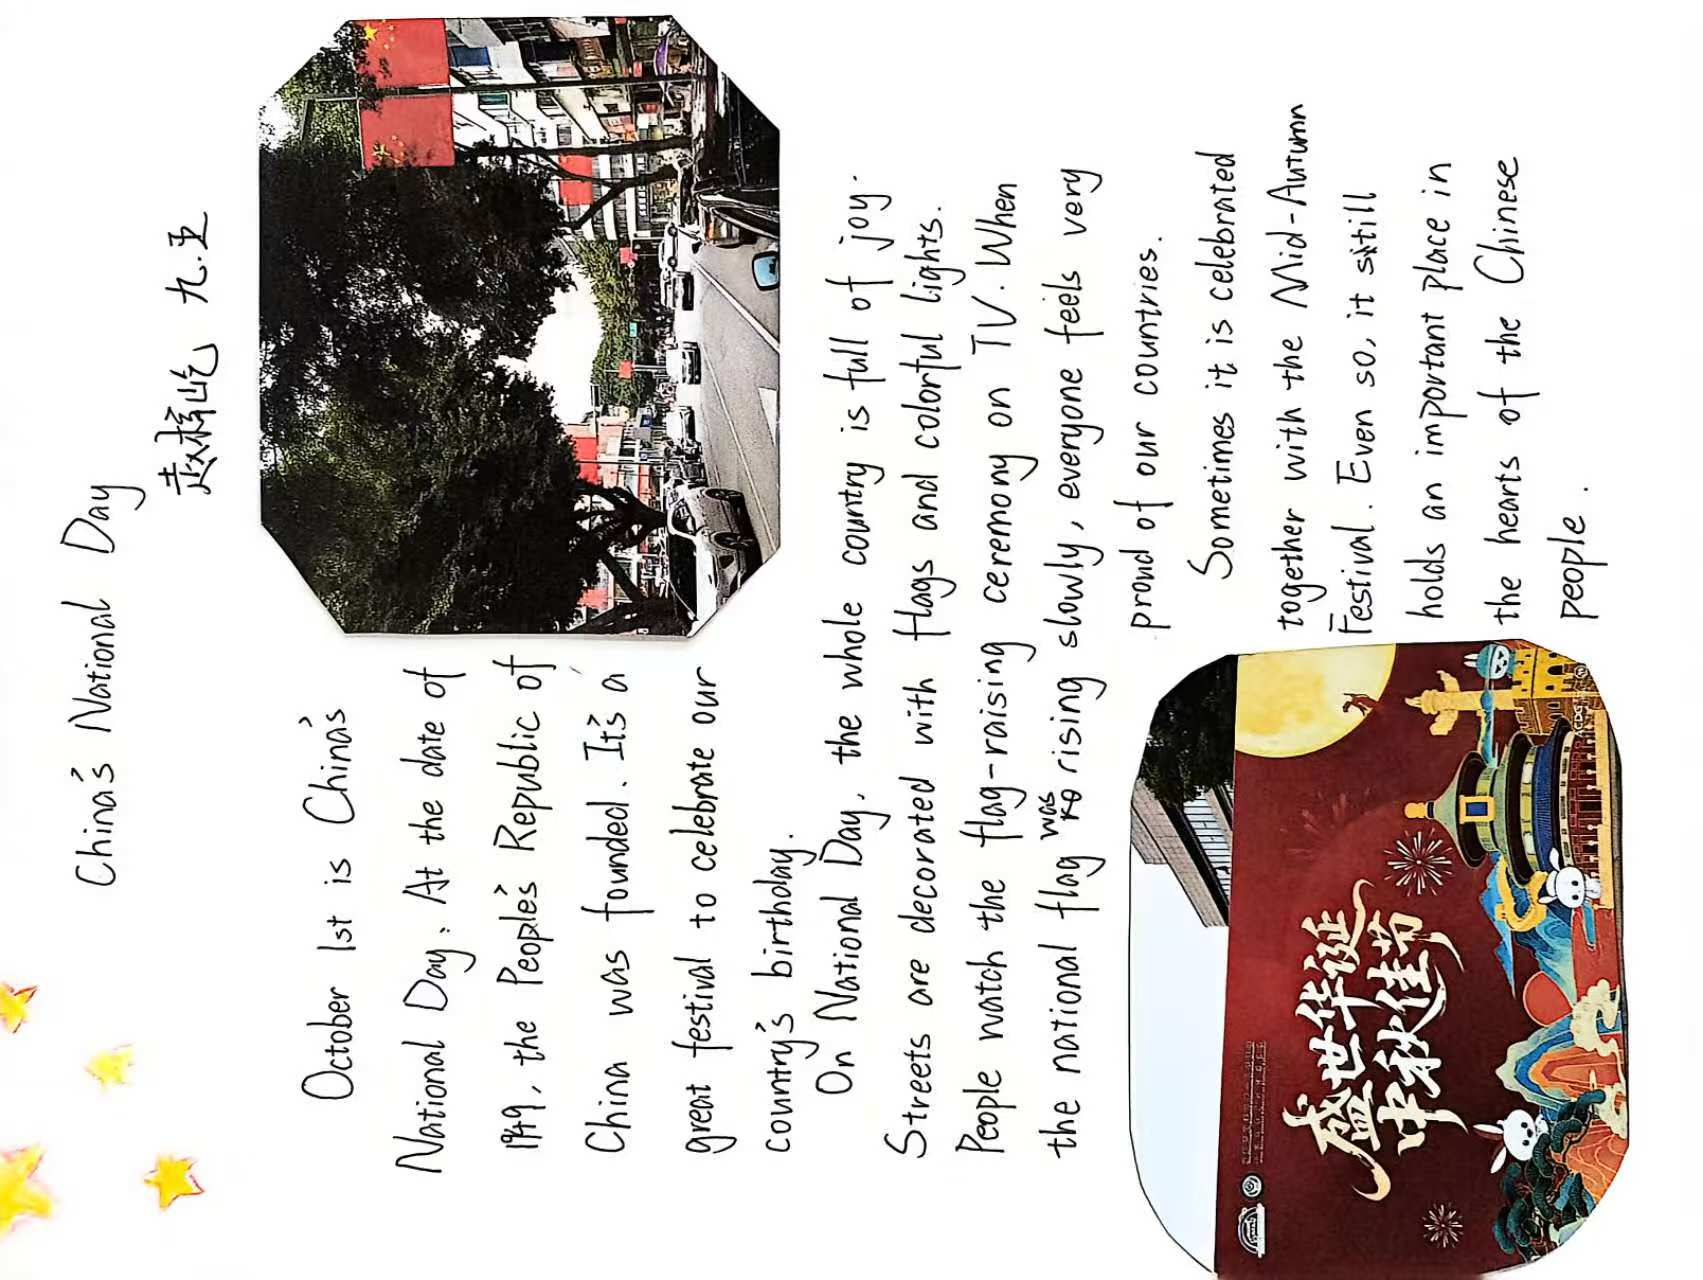 China's National Day
九.五
October 1st is China's
National Day. At the date of
1949, the People's Republic of
China was founded. It's a
great festival to celebrate our
country's birthday.
On National Day, the whole country is full of joy.
Streets are decorated with flags and colorful lights.
People watch the flag-raising ceremony on TV. When
the national flag was rising slowly, everyone feels very
proud of our countries.
Sometimes it is celebrated
together with the Mid-Autumn
Festival. Even so, it still
holds an important place in
the hearts of the Chinese
people.
盛世华诞
中秋佳节